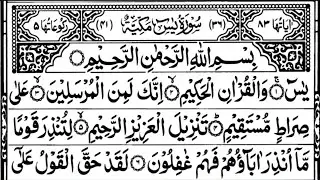 اٰیاتها ٨٣ (٣٦) سُوْرَةُ یٰسٓ مَكِّیَّةٌ (٤١) رکوعاتها ٥
بِسْمِ اللّٰهِ الرَّحْمٰنِ الرَّحِیْمِ
یٰسٓ ۚ١ وَالْقُرْاٰنِ الْحَكِیْمِ ۙ٢ اِنَّكَ لَمِنَ الْمُرْسَلِیْنَ ۙ٣ عَلٰی
صِرَاطٍ مُّسْتَقِیْمٍ ؕ٤ تَنْزِیْلَ الْعَزِیْزِ الرَّحِیْمِ ۙ٥ لِتُنْذِرَ قَوْمًا
مَّاۤ اُنْذِرَ اٰبَآؤُهُمْ فَهُمْ غٰفِلُوْنَ ٦ لَقَدْ حَقَّ الْقَوْلُ عَلٰۤی